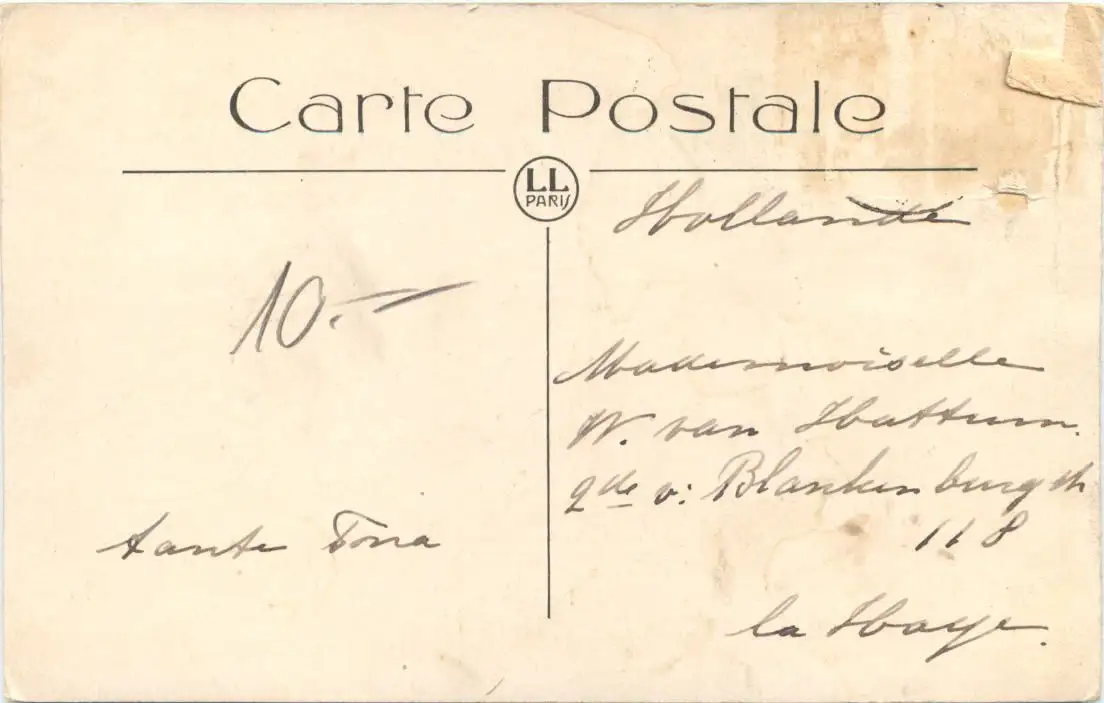 Carte Postale
LL
PARIS
Hollande
10.—
Mademoiselle
W. van Hattum.
2de v: Blankenburgstr
118
tante Tona
la Haye.